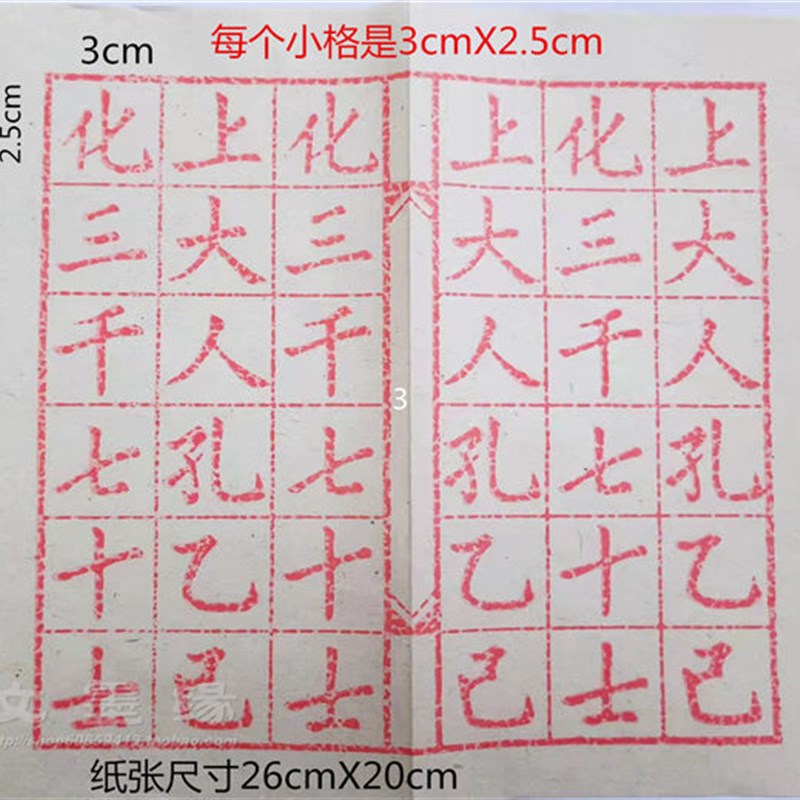 每个小格是3cmX2.5cm
3cm
2.5cm
上大人孔乙己
化三千七十士
上大人孔乙己
化三千七十士
上大人孔乙己
化三千七十士
3
墨缘
纸张尺寸26cmX20cm